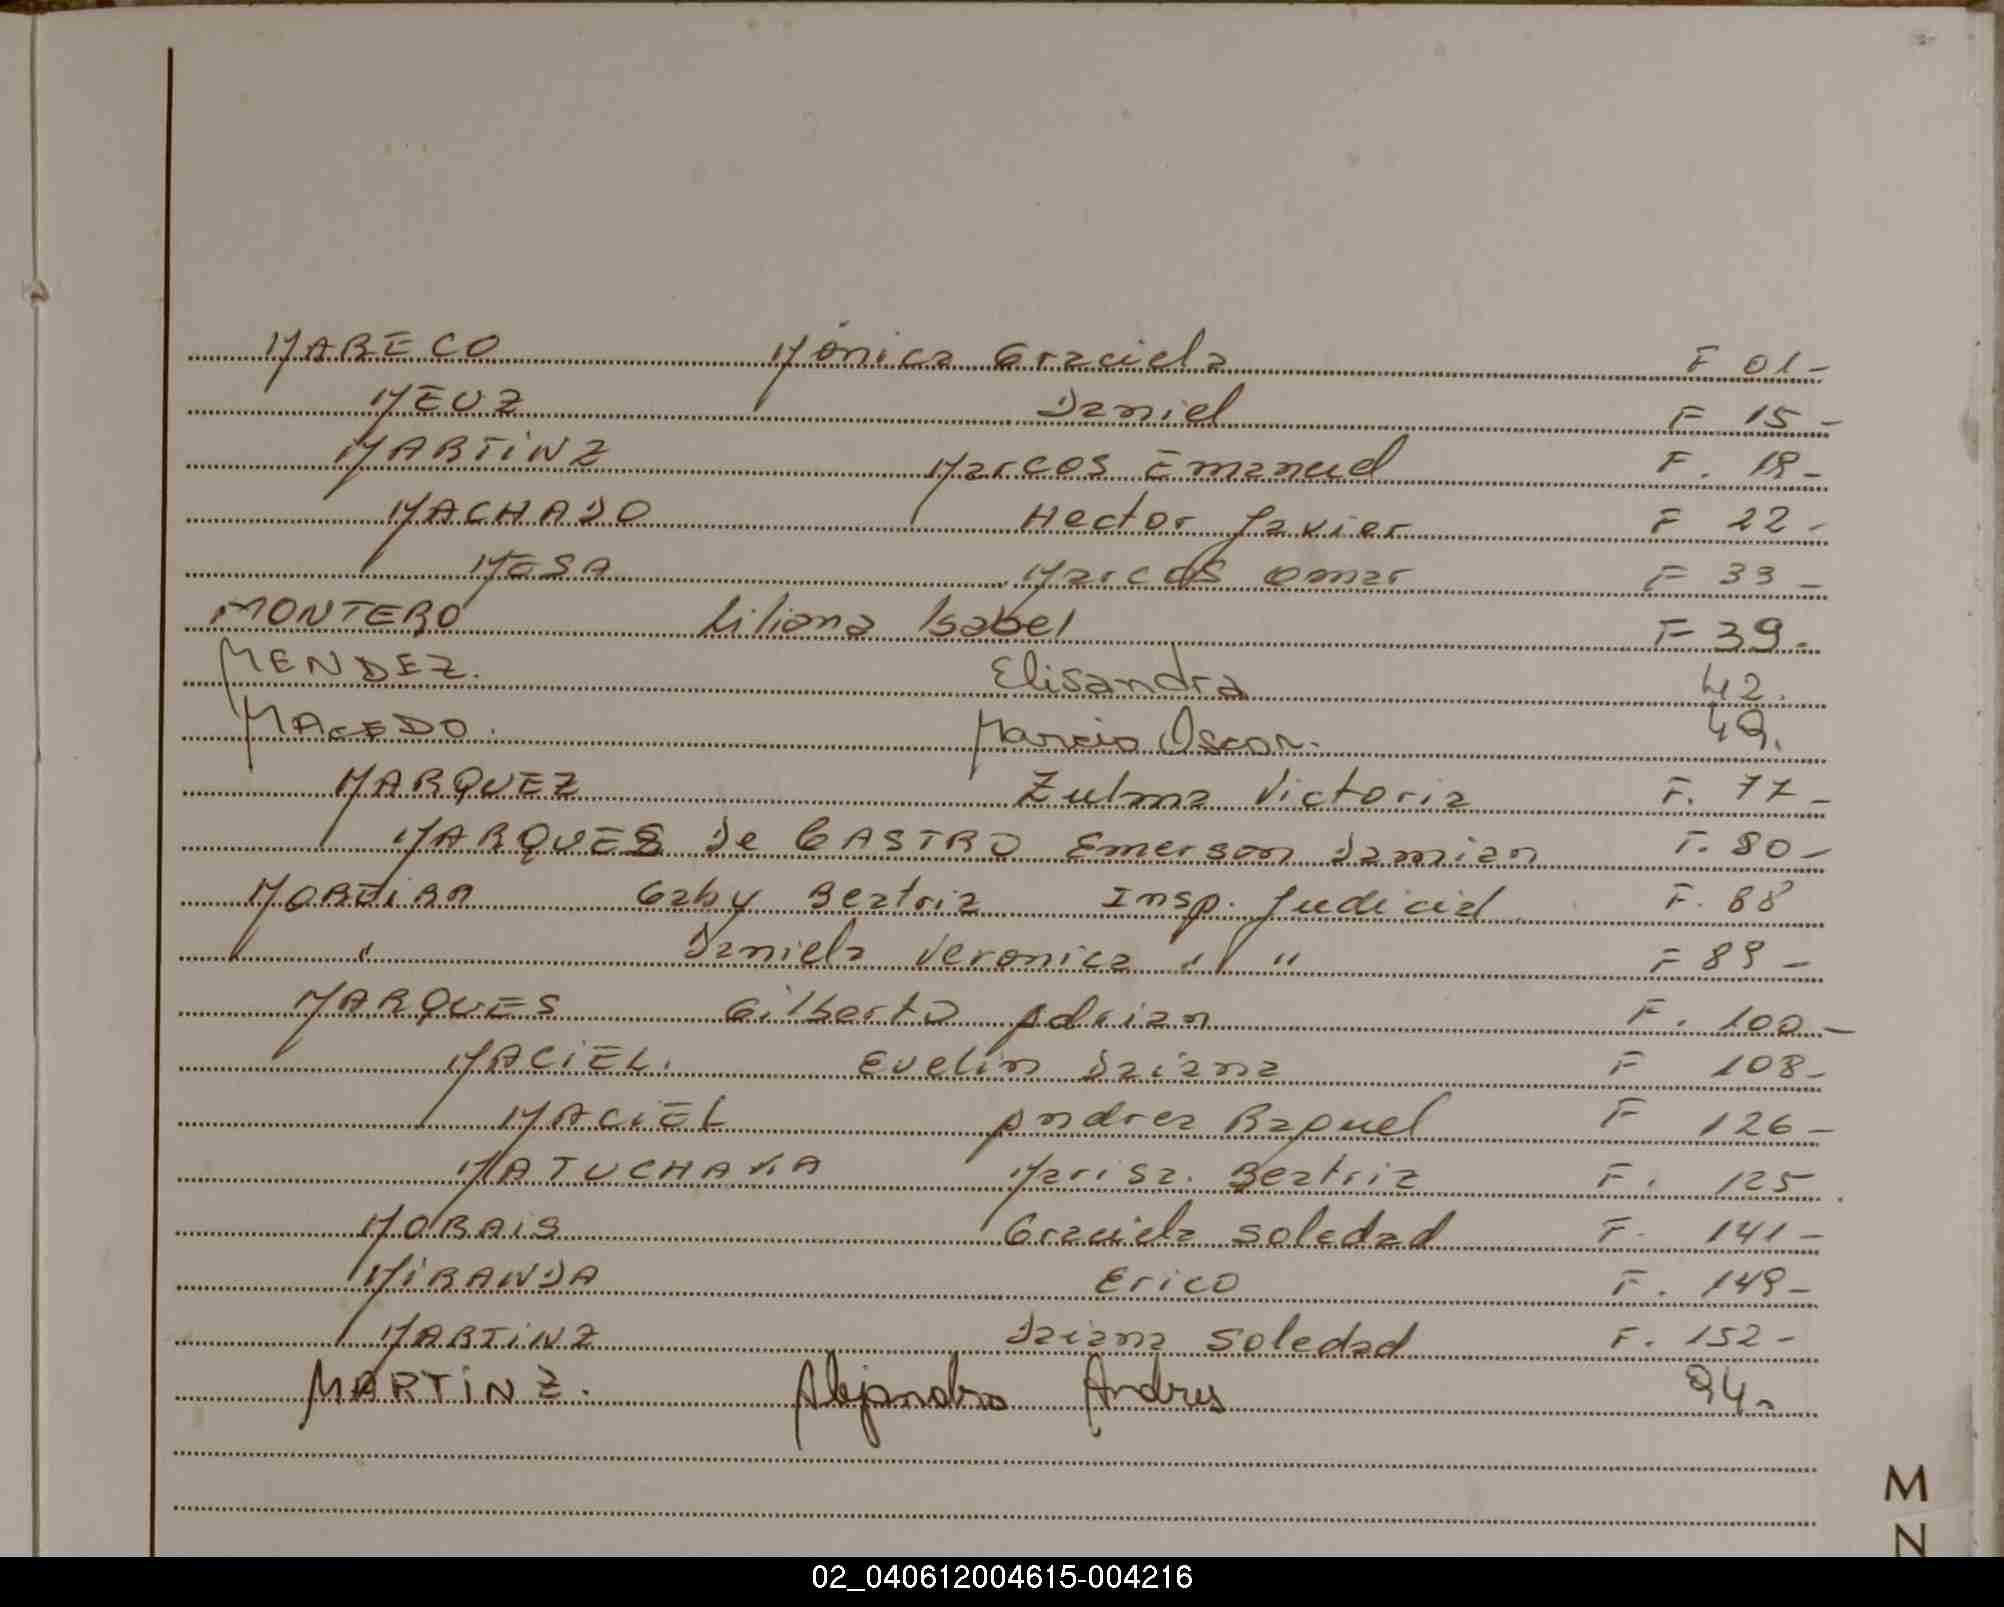 MARECO Mónica Graciela F 01-
MEUZ Daniel F 15-
MARTiNZ Marcos Emanuel F. 18-
MACHADO Hector Javier F 22-
MESA Marcos Omar F 33-
MONTERO Liliana Isabel F 39.
MENDEZ. Elisandra 42.
MACEDO. Marcio Oscar. 49.
MARQUEZ Zulma Victoria F. 77-
MARQUES De CASTRO Emerson Damian F. 80-
MOREiRA Gaby Beatriz Insp. Judicial F. 88
" Daniela Veronica " " F 89-
MARQUES Gilberto Adrian F. 100-
MACiEL. Evelin Daiana F 108-
MACiEL Andrea Raquel F 126-
Marisa. Beatriz F. 125
MORAiS Graciela Soledad F. 141-
MiRANDA Erico F. 149-
MARTiNZ Daiana Soledad F. 152-
MARTiNZ. Alejandro Andres 94.
M
N
02_040612004615-004216